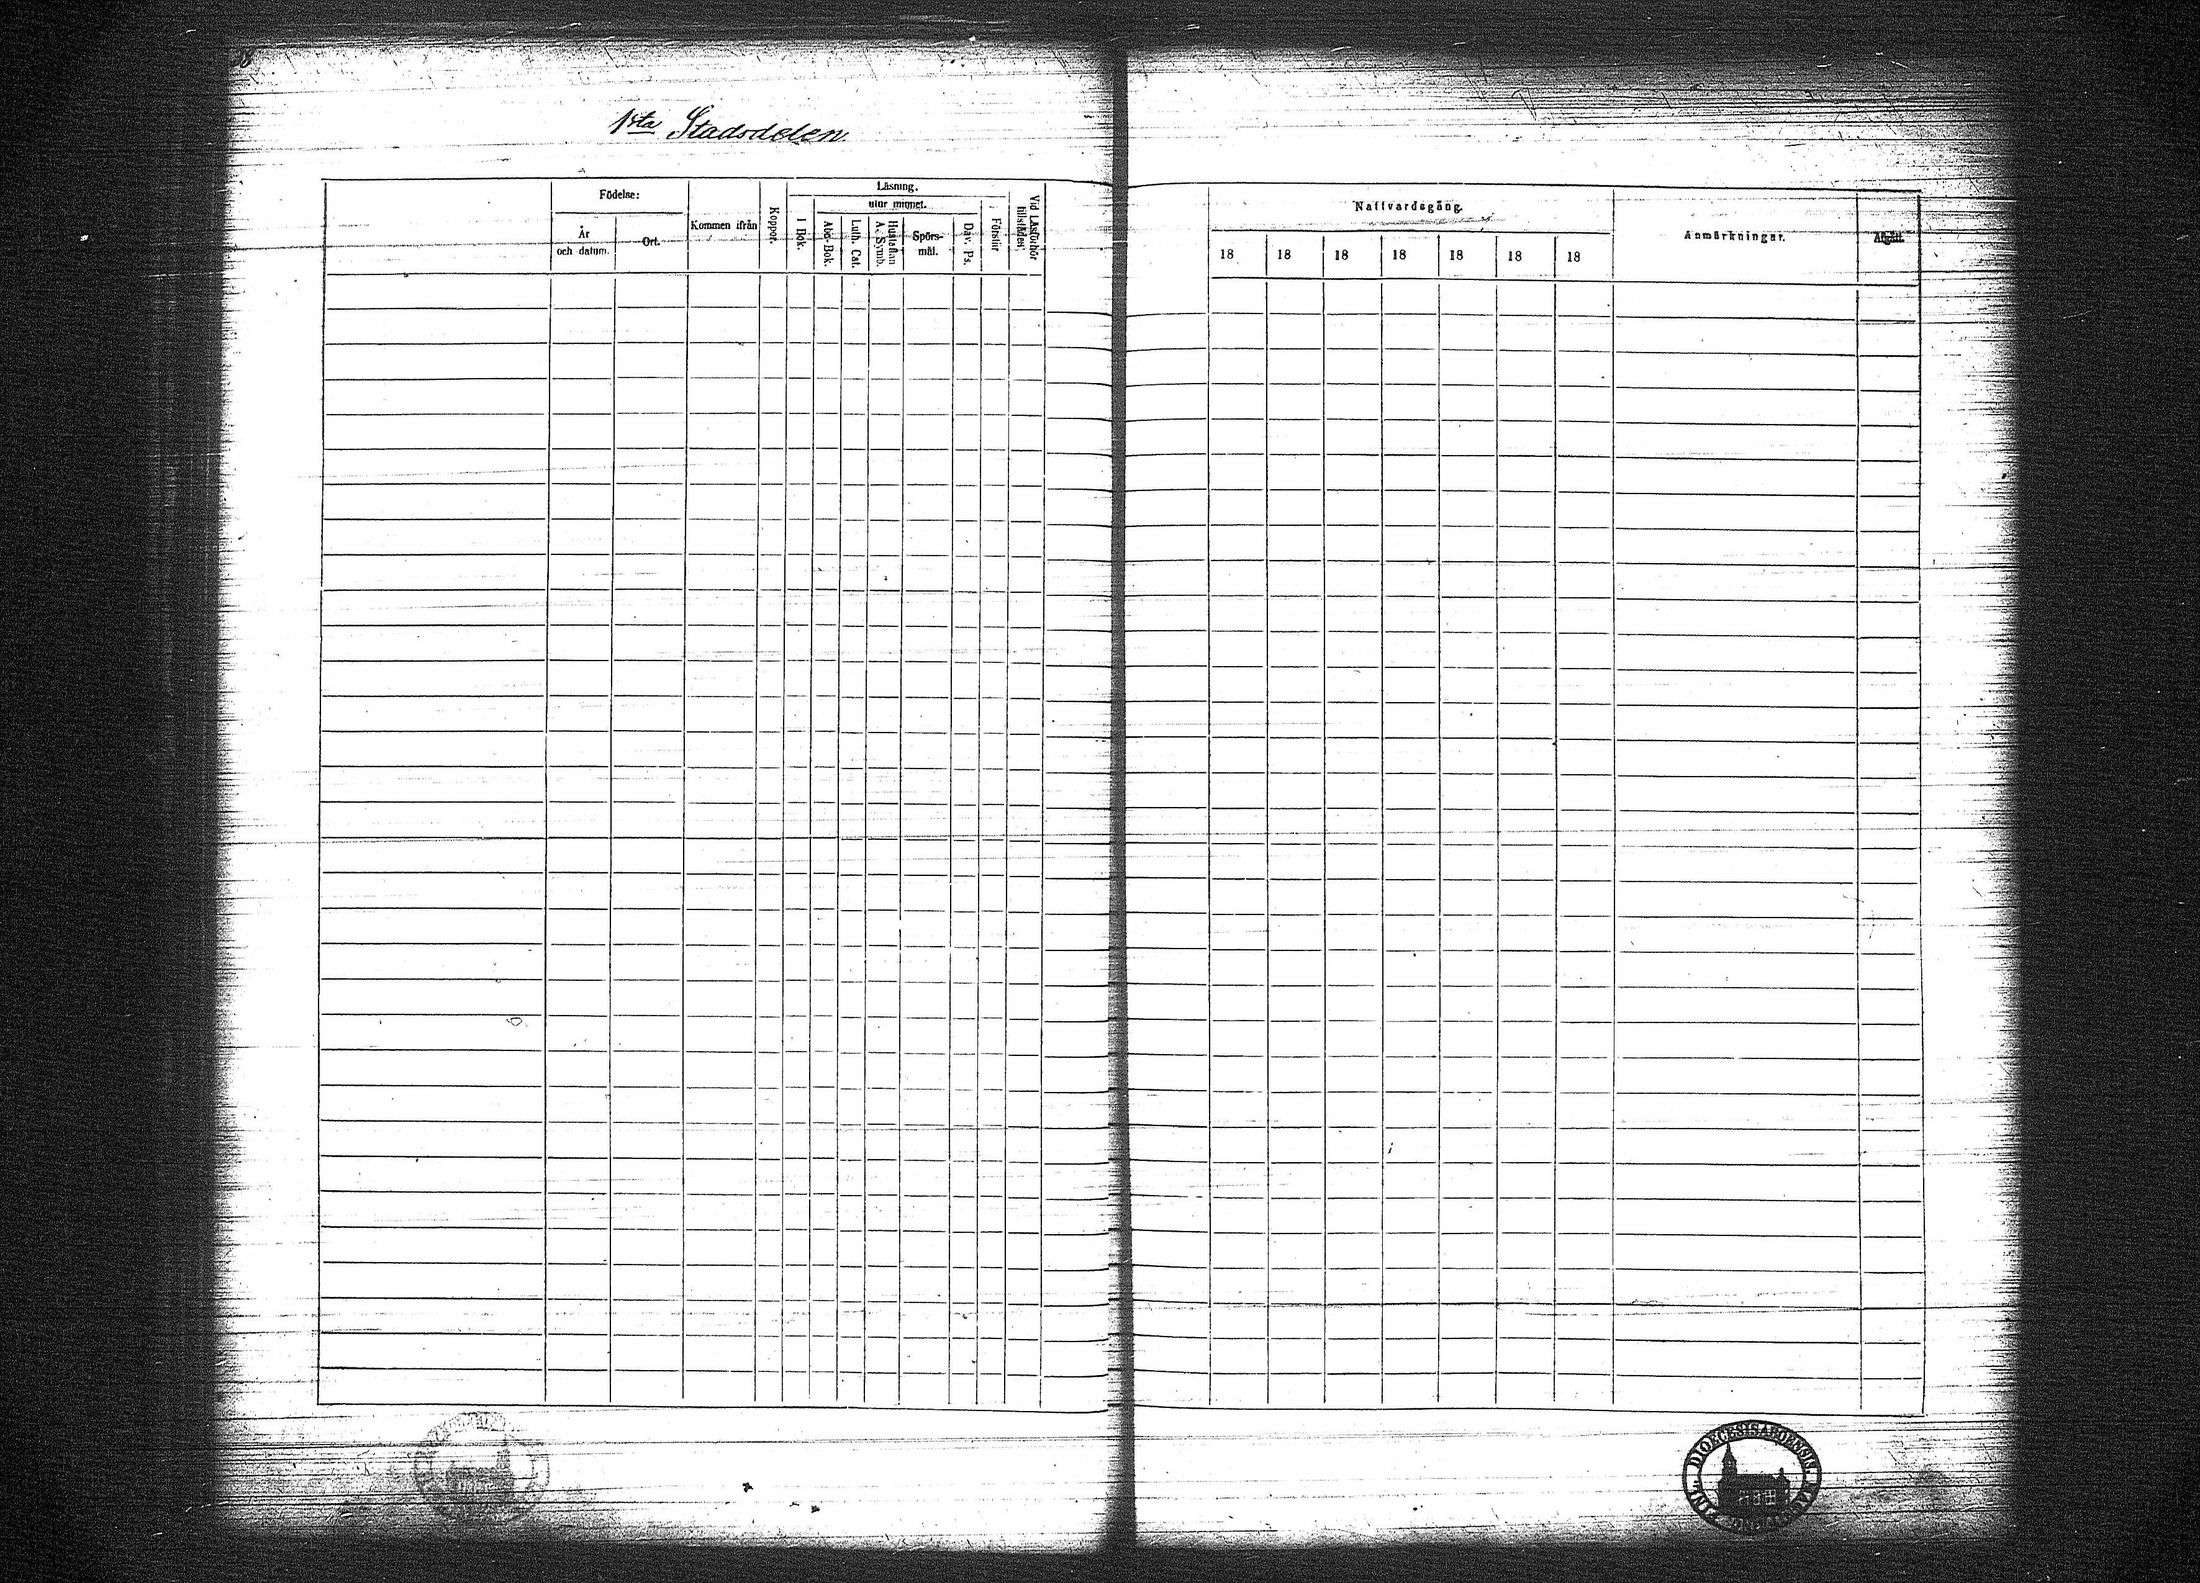 8
1sta Stadsdelen.
Födelse:
År
och datum.
Ort.
Kommen ifrån
Koppor.
Läsning.
utur minnet.
I Bok.
Abc-Bok.
Luth. Cat.
Hustaflan
A. Symb.
Spörs-
mål.
Dav. Ps.
Förstår
Vid Läsförhör
tillstädes.
Nattvardsgång.
18 18 18 18 18 18 18
Anmärkningar.
Afgått.
DIOECESIS ABOENSIN